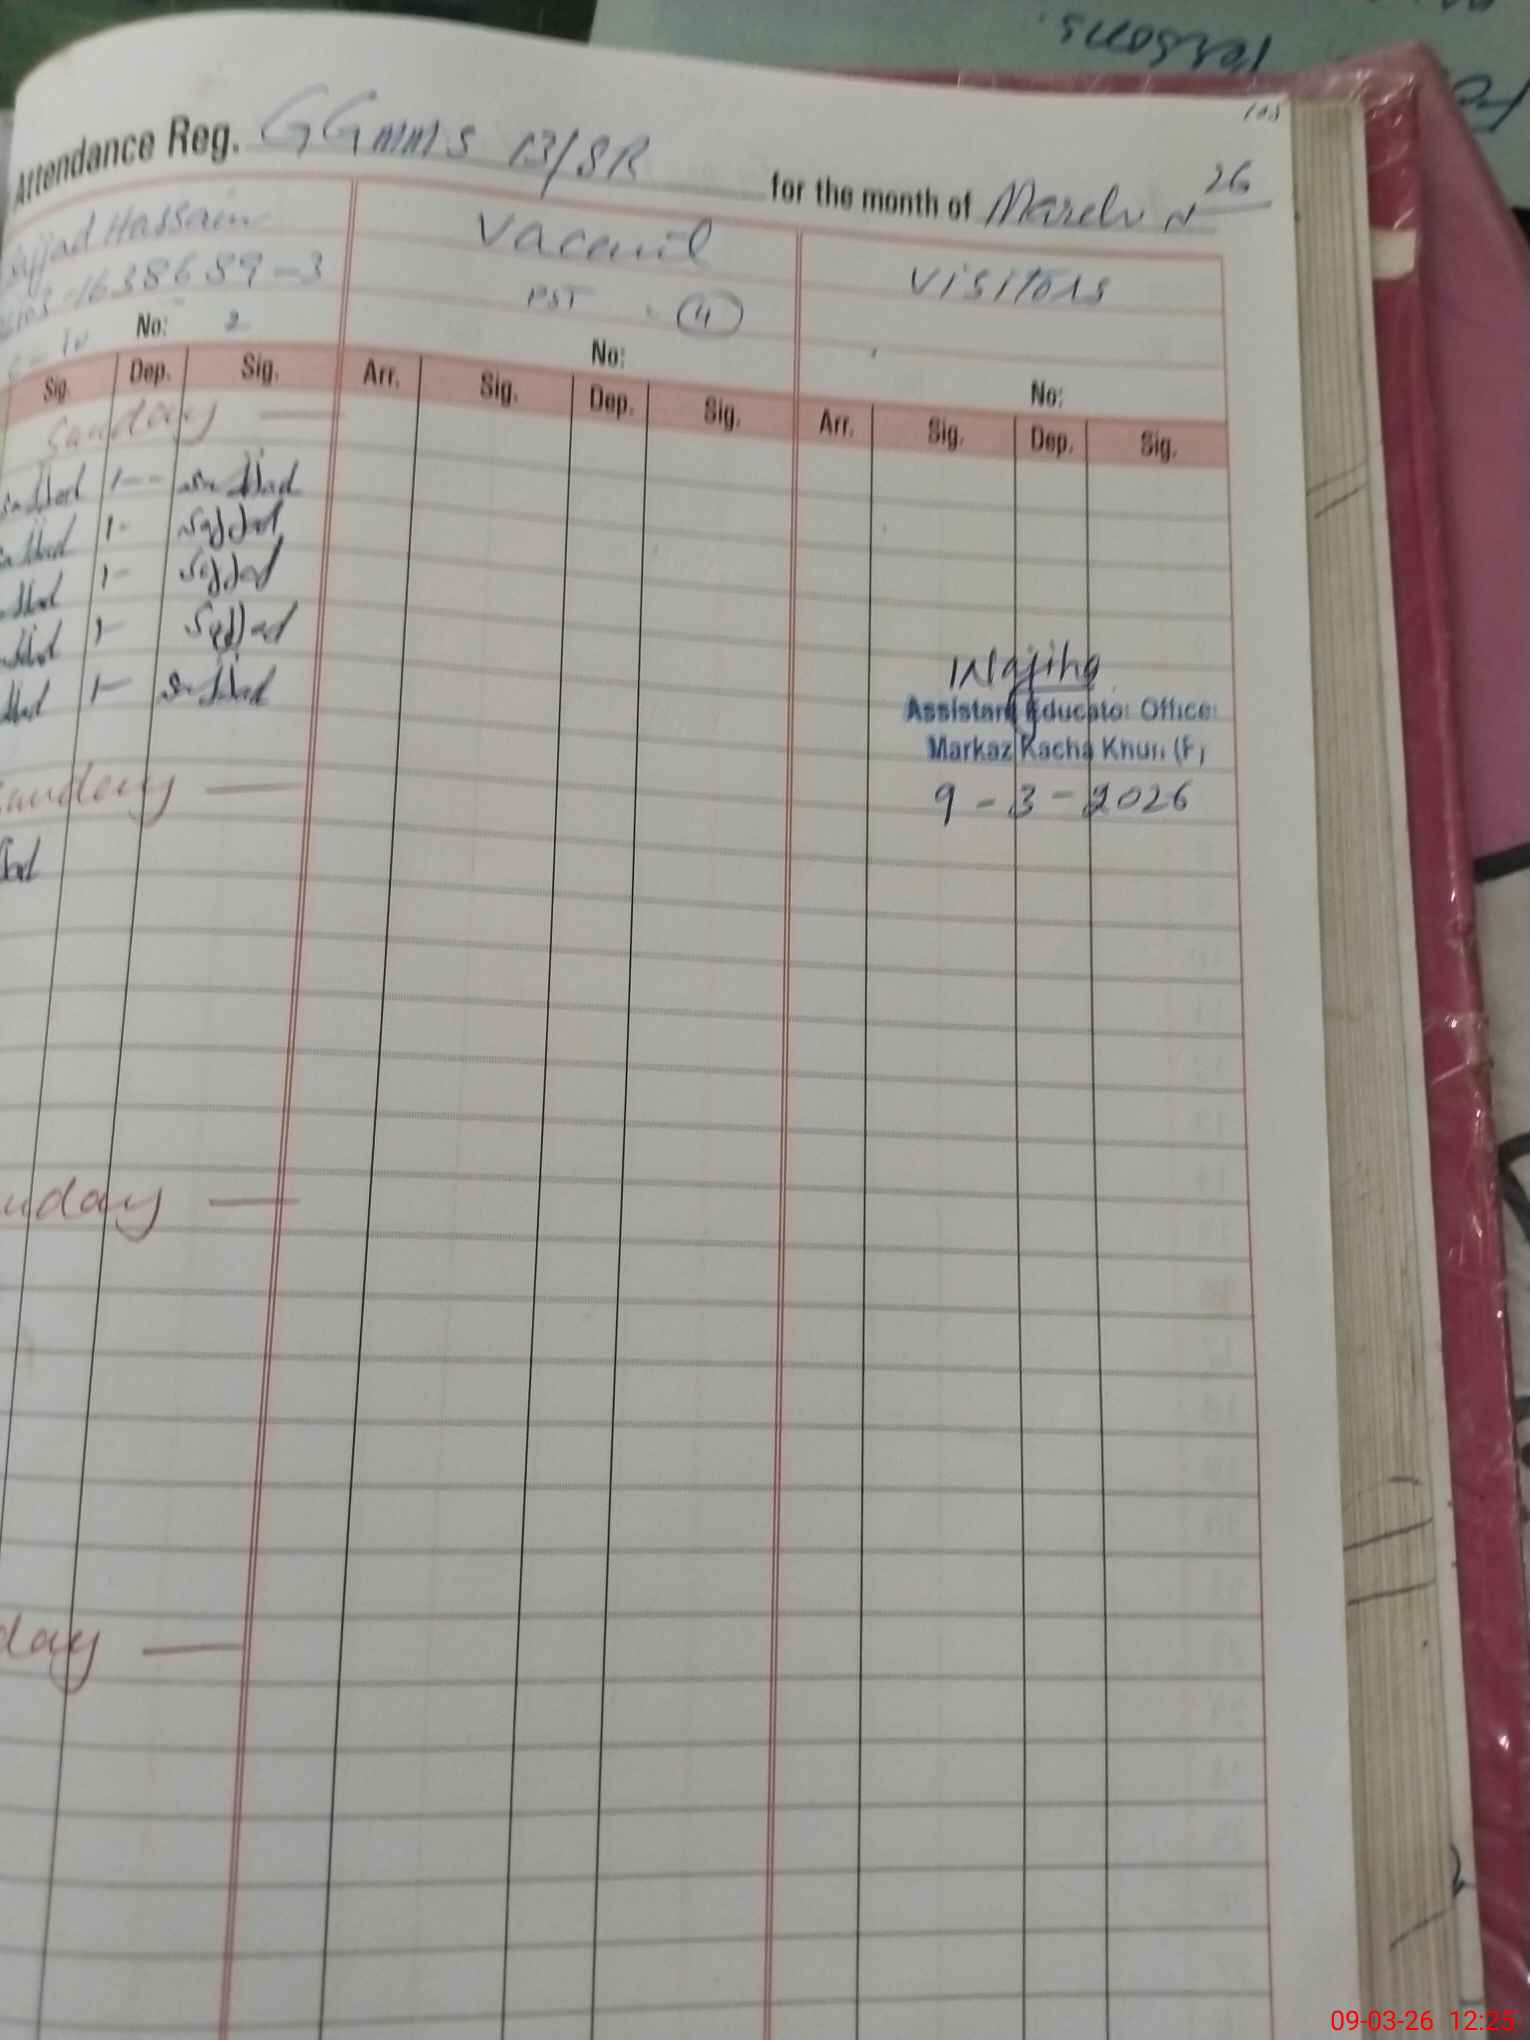 Persons.
103
Attendance Reg. GGMMS 13/SR for the month of March 26
Sajjad Hassain
1638689-3
No: 2
Vacant
PST 4
No:
Visitors
No:
Sig. Dep. Sig. Arr. Sig. Dep. Sig. Arr. Sig. Dep. Sig.
Sunday —
Sajjad 1-- Sajjad
Sajjad 1- Sajjad
1- Sajjad
1- Sajjad
1- Sajjad
Wajiha
Assistant Educatio Office
Markaz Kacha Khuh (F)
Sunday —
9-3-2026
unday —
day —
09-03-26 12:25